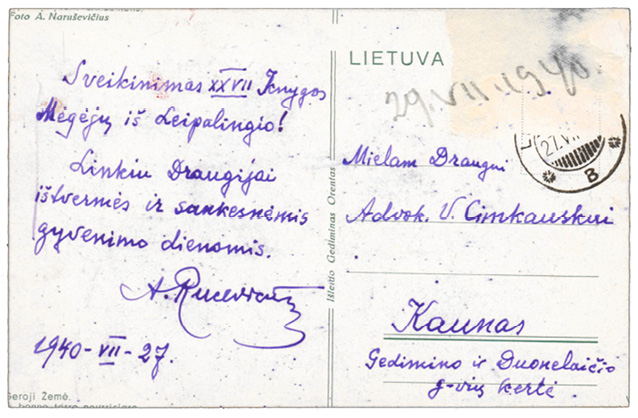 Foto A. Naruševičius
Sveikinimas XXVII Knygos
Mėgėjų iš Leipalingio!
Linkiu Draugijai
ištvermės ir sunkesnėmis
gyvenimo dienomis.
1940-VII-27.
Geroji Žemė.
Išleido Gediminas Orentas
LIETUVA
29.VII.1940.
27.VII
B
Mielam Draugui
Advok. V. Cimkauskui
Kaunas
Gedimino ir Duonelaičio
g-vių kertė